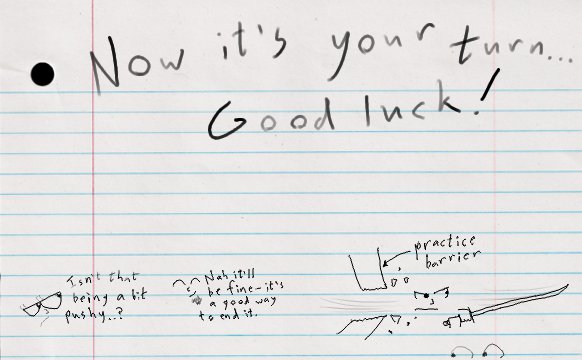 Now it's your turn...
Good luck!
Isn't that
being a bit
pushy..?
Nah it'll
be fine-it's
a good way
to end it.
practice
barrier